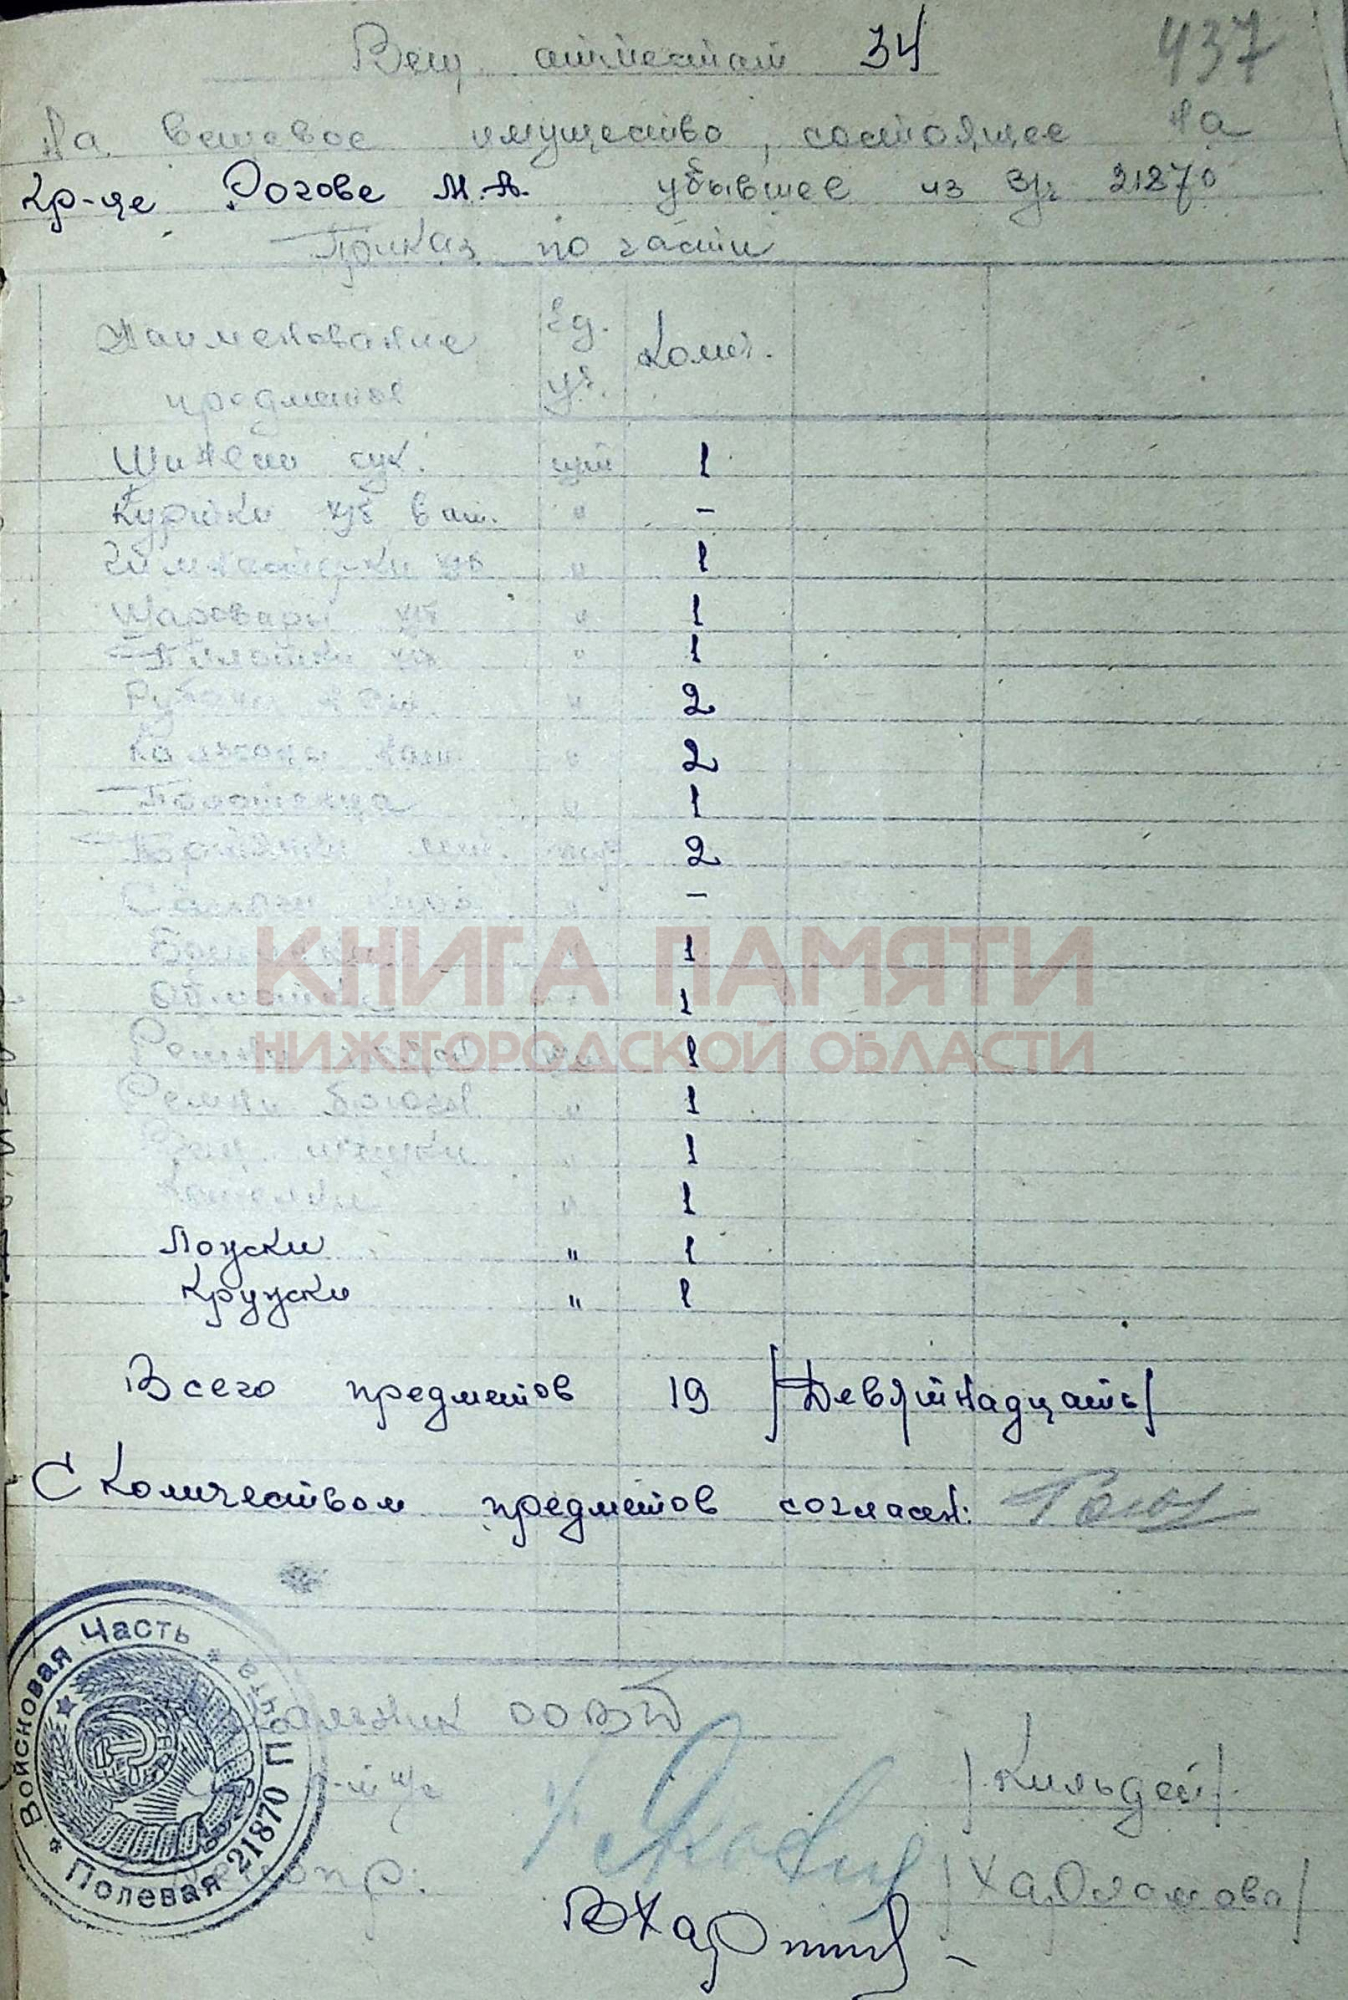 Вещ. аттестат 34
437
На вещевое имущество, состоящее на
Кр-це Рогове М.А. убывшее из в/ч 21870
Приказ по части
Наименование предметов Ед. уч. Колич.
Шинели сук. шт 1
Куртки х/б ват. " -
Гимнастерки х/б " 1
Шаровары х/б " 1
Пилотки х/б " 1
Рубахи нат. " 2
Кальсоны нат. " 2
Полотенца " 1
Портянки лет. пар 2
Сапоги кирз. " -
Ботинки " 1
Обмотки " 1
Ремни шт 1
Ремни брючн. " 1
Вещ. мешки " 1
Котелки " 1
Ложки " 1
Кружки " 1
КНИГА ПАМЯТИ
НИЖЕГОРОДСКОЙ ОБЛАСТИ
Всего предметов 19 /Девятнадцать/
С количеством предметов согласен:
Войсковая Часть * Полевая Почта * 21870
/Кильдей/
Делопр: /Харламова/